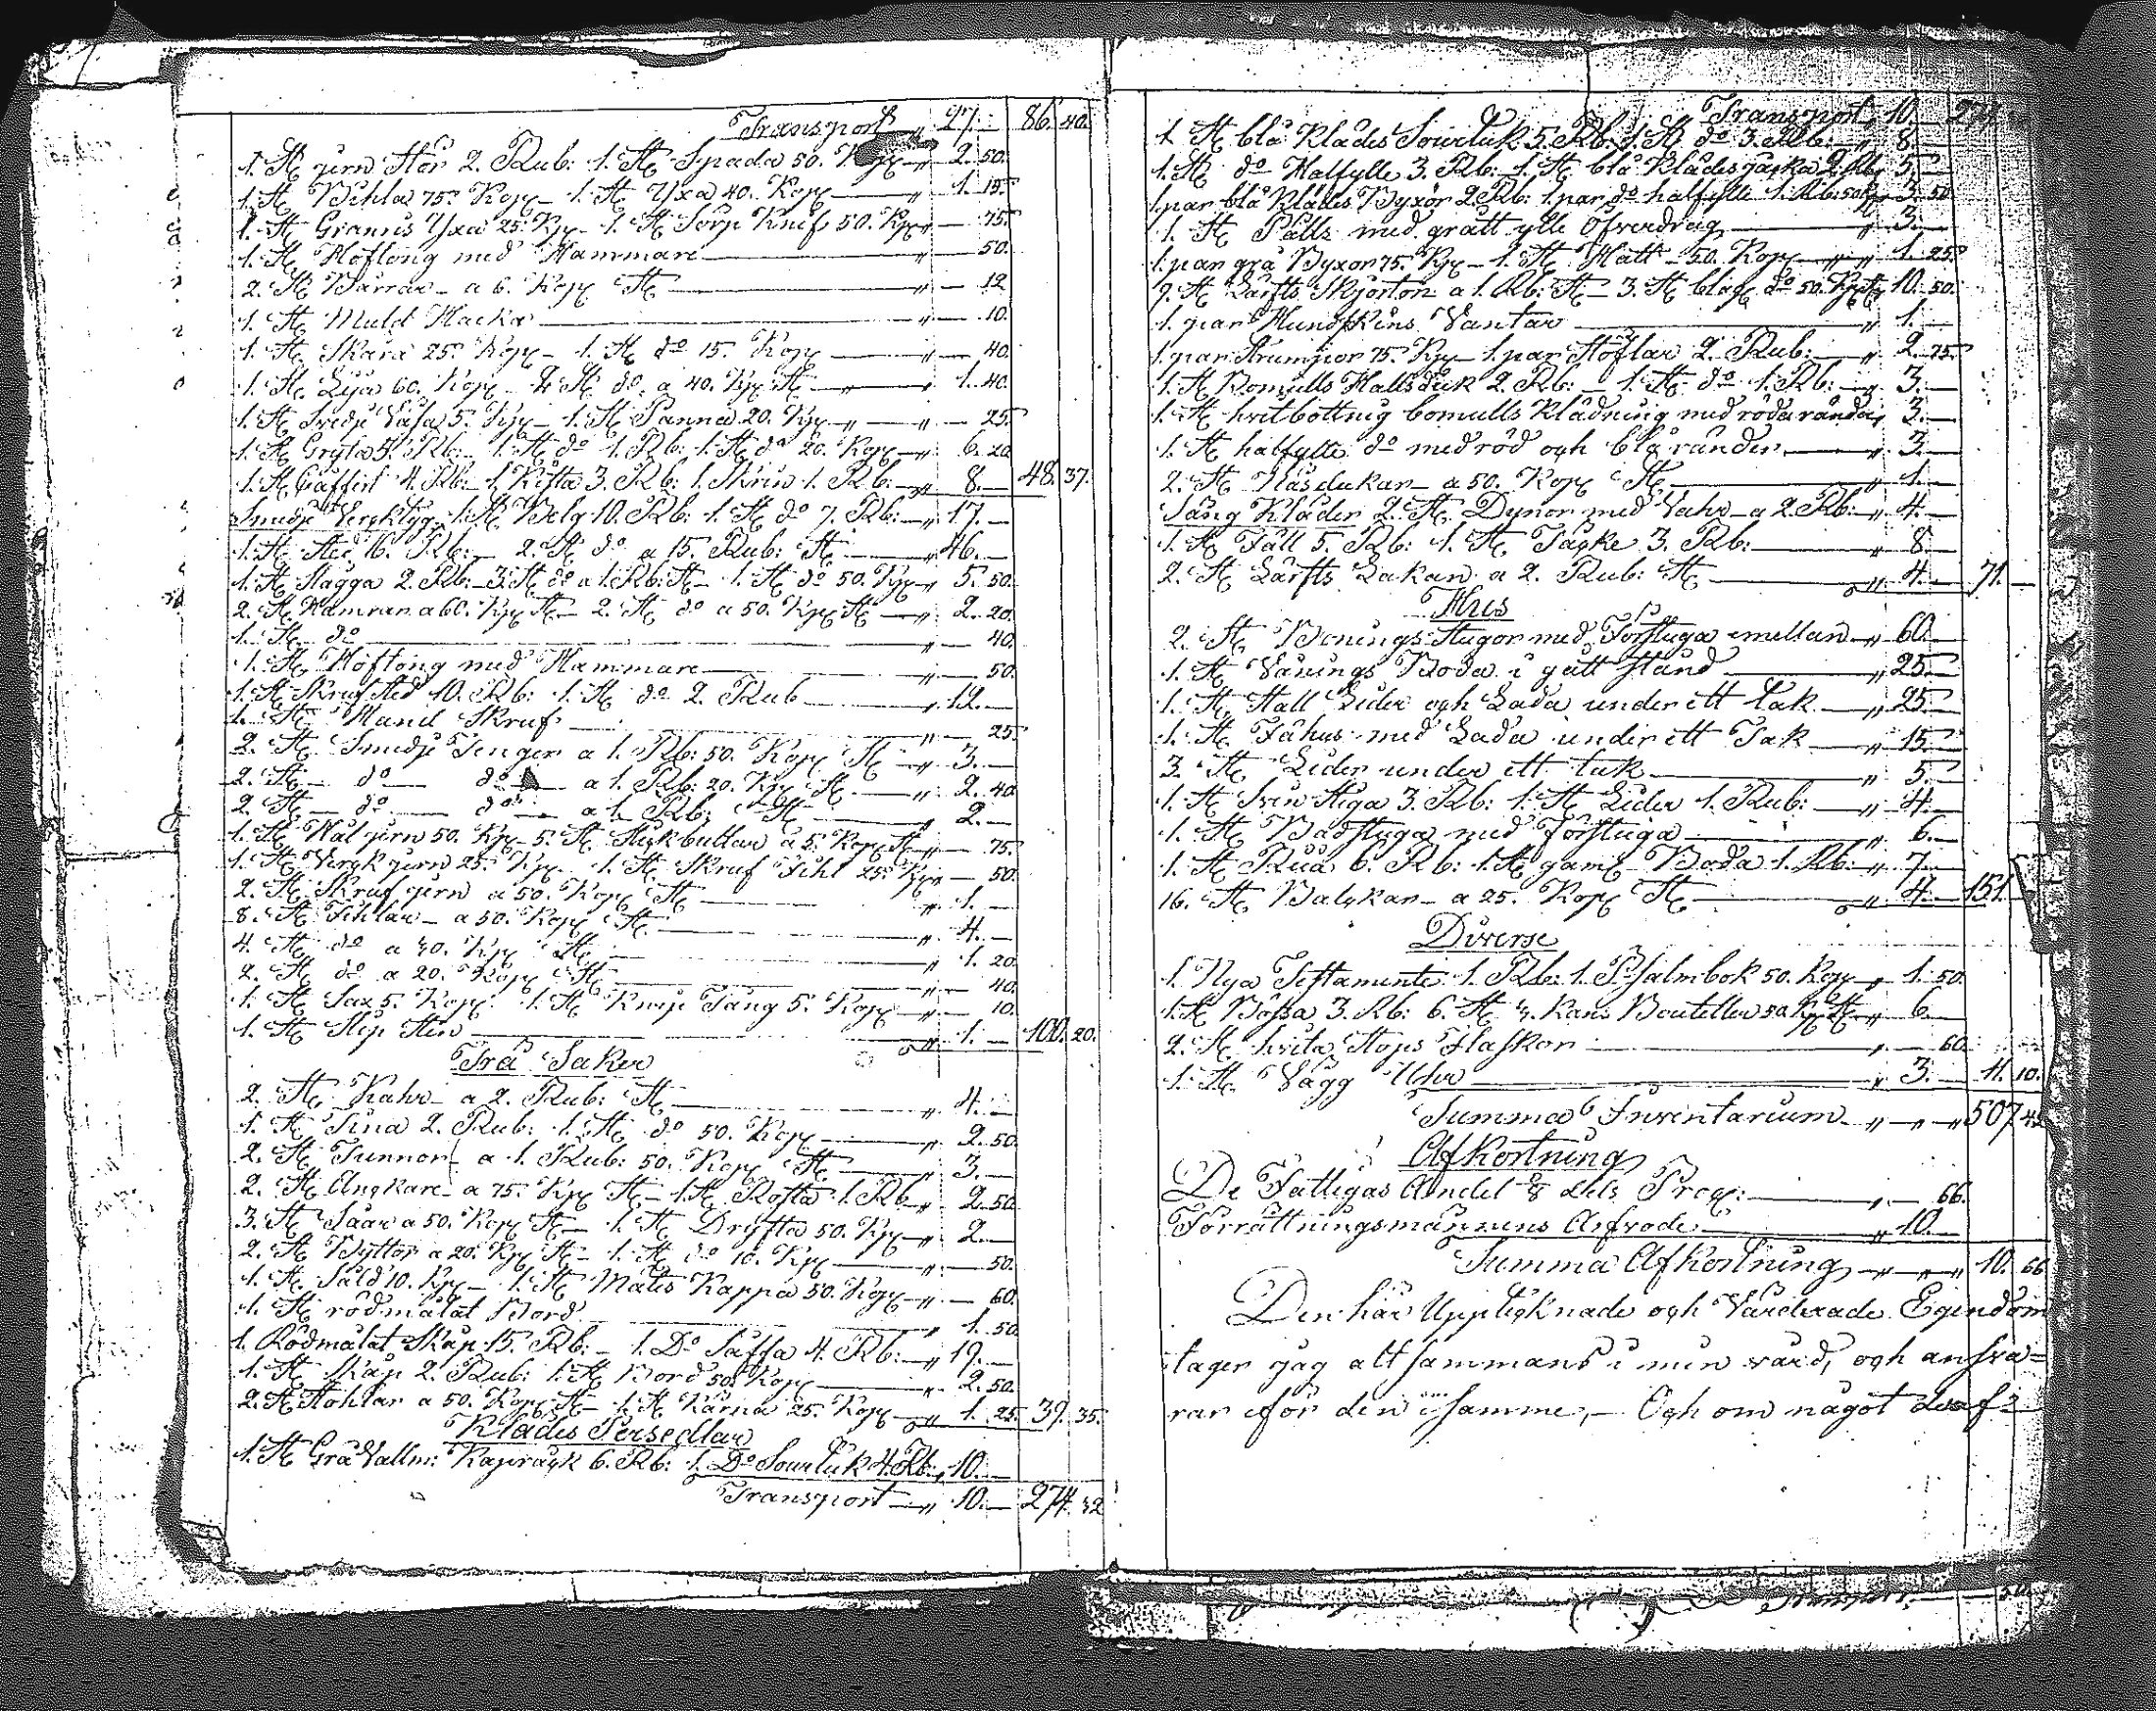 Transport „ 27. — 86. 40.
1. St. jern Stör 2. Rub: 1. St. Spada 50. Kop „ 2. 50.
1. St. Bihla 75. Kop — 1. St. Yxa 40. Kop — „ 1. 15.
1. St. Grannis Yxa 25. Kp — 1. St. Sörp Knif 50. Kp „ — 75.
1. St. Hoftong med Hammare — „ — 50.
2. St. Barrar — a 6. Kop St — „ — 12
1. St. Muld Hacka — „ — 10.
1. St. Skära 25. Kop — 1. St. do 15. Kop — „ — 40.
1. St. Lija 60. Kop — 2. St. do a 40. Kp St — „ 1. 40.
1. St. Svedje 5. Kp — 1. St. Panna 20. Kp — „ — 25.
1. St. Gryta 5. Rb: — 1. St. do 1. Rb: 1. St. do 20. Kop — „ 6. 20
1. St. 4. Rb: — 1. Kista 3. Rb: 1. Skrin 1. Rb: — „ 8. — 48. 37.
Smedje Vergktyg 1. St. Belg 10. Rb: 1. St. do 7. Rb: — „ 17. —
1. St. Sted 16. Rb: — 2. St. do a 15. Rub: St — „ 46. —
1. St. Slägga 2. Rb: — 3. St. do a 1. Rb: St — 1. St. do 50. Kp — „ 5. 50.
2. St. Hamrar a 60. Kp St — 2. St. do a 50. Kp St — „ 2. 20.
1. St. do — „ — 40.
1. St. Hoftong med Hammare — „ — 50.
1. St. Skrufsted 10. Rb: 1. St. do 2. Rub — „ 12. —
1. St. Hand Skruf — „ — 25.
2. St. Smedje Tenger a 1. Rb: 50. Kop St — „ 3. —
2. St. — do — do — a 1. Rb: 20. Kp St — „ 2. 40
2. St. — do — do — a 1. Rb: St — „ 2. —
1. St. Nål jern 50. Kp — 5. St. a 5. Kop St — „ — 75.
1. St. Vergk jern 25. Kp — 1. St. Skruf Fihl 25. Kp „ — 50.
2. St. Skruf jern a 50. Kop St — „ 1. —
8. St. Fihlar — a 50. Kop St — „ 4. —
4. St. do a 30. Kp St — „ 1. 20.
2. St. do a 20. Kop St — „ — 40.
1. St. Sax 5. Kop 1. St. Knip Tång 5. Kop — „ — 10.
1. St. Slip Sten — „ 1. — 100. 20.
Trä Saker
2. St. Kahr — a 2. Rub: St — „ 4. —
1. St. Tina 2. Rub: 1. St. do 50. Kop — „ 2. 50.
2. St. Tunnor — a 1. Rub: 50. Kop St — „ 3. —
2. St. Angkare — a 75. Kp St — 1. St. Rosta 1. Rb „ 2. 50.
3. St. Såar a 50. Kop St — 1. St. Dryfta 50. Kp — „ 2. —
2. St. Byttor a 20. Kp St — 1. St. do 10. Kp — „ — 50.
1. St. Såld 10. Kp — 1. St. Mätes Kappa 50. Kop — „ — 60.
1. St. rödmålat Bord — „ 1. 50.
1. Rödmålat Skåp 15. Rb: — 1. Do Säffa 4. Rb: — „ 19. —
1. St. Skåp 2. Rub: 1. St. Bord 50. Kop — „ 2. 50.
2. St. Stohlar a 50. Kop St — 1. St. Kärna 25. Kop — „ 1. 25. 39. 35.
Klädes Persedlar
1. St. Grå Vallm: Kapråck 6. Rb: 1. Do Sourtuk 4. Rb. „ 10. —
Transport — „ 10. — 274. 32
Transport „ 10. — 274
1. St. blå Klädes Sourtuk 5. Rb: 1. St. do 3. Rb: „ 8. —
1. St. do Halfylle 3. Rb: — 1. St. blå Klädes jacka 2. Rb „ 5. —
1. par blå Klädes Byxor 2. Rb: 1. par do halfylle 1. Rb: 50 K „ 3. 50
1. St. Pälls med grått ylle Öfverdrag — „ 3. —
1. par grå Byxor 75. Kp — 1. St. Hatt — 50. Kop — „ 1. 25.
9. St. Lärfts Skjortor a 1. Rb: St — 3. St. do 50. Kp St „ 10. 50.
1. par Hundskins Vantar — „ 1. —
1. par Strumpor 75. Kp — 1. par Stöflar 2. Rub: — „ 2. 75.
1. St. Bomulls Hallsduk 2. Rb: — 1. St. do 1. Rb: — „ 3. —
1. St. hvitbottnig bomulls Klädning med röda ränder „ 3. —
1. St. halfylle do med röd och blå ränder — „ 3. —
2. St. Näsdukar — a 50. Kop St — „ 1. —
Säng Kläder 2. St. Dynor med Vahr — a 2. Rb: — „ 4. —
1. St. Fäll 5. Rb: 1. St. Täcke 3. Rb: — „ 8. —
2. St. Lärfts Lakan a 2. Rub: St — „ 4. — 71. —
Hus
2. St. Bonings Stugor med Förstuga emellan — „ 60. —
1. St. Vånings Boda i gått stånd — „ 25. —
1. St. Stall Lider och Lada under ett tak — „ 25. —
1. St. Fähus med Lada under ett Tak — „ 15. —
3. St. Lider under ett tak — „ 5. —
1. St. Svin Stiga 3. Rb: 1. St. Lider 1. Rub: — „ 4. —
1. St. Badstuga med Förstuga — „ 6. —
1. St. Riia 6. Rb: 1. St. gaml Boda 1. Rb: — „ 7. —
16. St. Balckar — a 25. Kop St — „ 4. — 151. —
Diverse
1. Nya Testamente 1. Rb: 1. Psalmbok 50. Kop — „ 1. 50.
1. St. Bössa 3. Rb: 6. St. Kans Bouteller 50 Kp St — „ 6. —
2. St. hvita Stops Flaskor — „ — 60.
1. St. Vägg Uhr — „ 3. — 11. 10.
Summa Inventarium „ — „ — „ 507 42
Afkortning
De Fattigas Andel 1/8 dels Proc: — „ — 66.
Förrättningsmännens Arfvode — „ 10. —
Summa Afkortning — „ — „ — „ 10. 66
Den här Upptecknade och Värderade Egendom
tager jag alt sammans i min vård, och ansva=
rar för den samme, — Och om något deraf